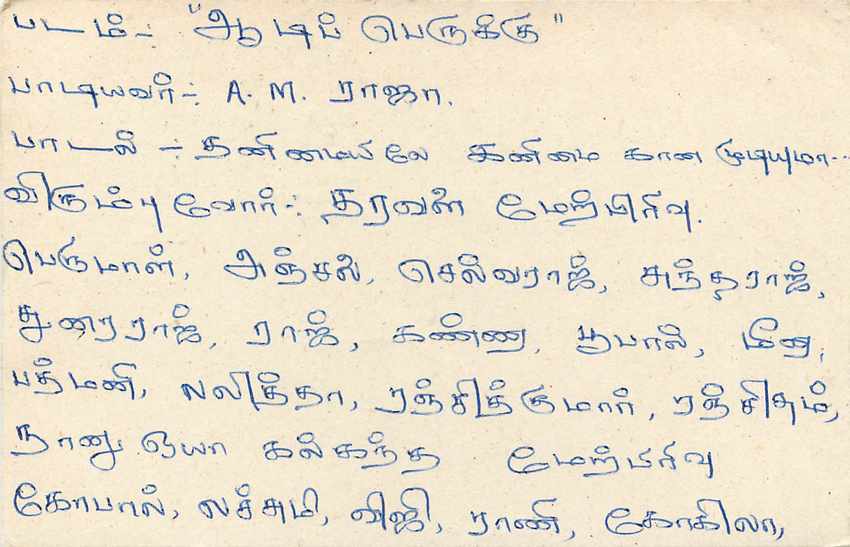 படம்:- "ஆடிப் பெருக்கு"
பாடியவர்:- A. M. ராஜா.
பாடல் :- தனிமையிலே கனிமை கான முடியுமா...
விரும்புவோர்:- தரவளை மேற்பிரிவு.
பெருமாள், அஞ்சல், செல்வராஜ், சுந்தராஜ்,
துரைராஜ், ராஜ், கண்ணு, பூபால், மீனு,
பத்மனி, லலித்தா, ரஞ்சித்குமார், ரஞ்சிதம்,
நானுஓயா கல்கந்த மேற்பிரிவு
கோபால், லச்சுமி, விஜி, ராணி, கோகிலா,